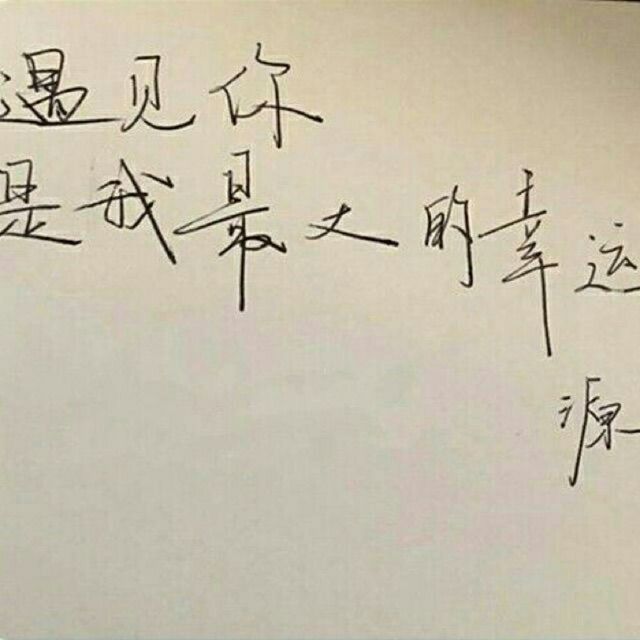 遇见你
是我最大的幸运
源